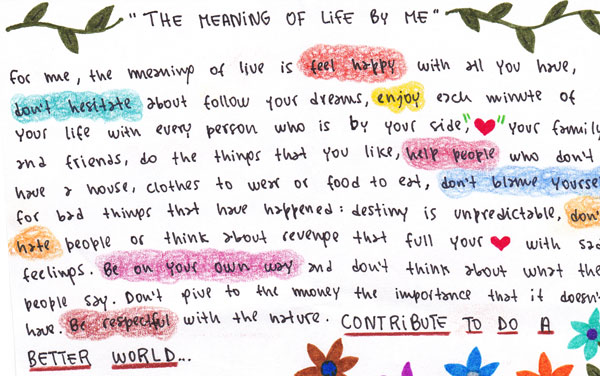 "THE MEANING OF LIFE BY ME"
For me, the meaning of live is feel happy with all you have,
don't hesitate about follow your dreams, enjoy each minute of
your life with every person who is by your side, "♥" your family
and friends, do the things that you like, help people who don't
have a house, clothes to wear or food to eat, don't blame yourse
for bad things that have happened: destiny is unpredictable, don'
hate people or think about revenge that full your ♥ with sad
feelings. Be on your own way and don't think about what the
people say. Don't give to the money the importance that it doesn'
have. Be respectful with the nature. CONTRIBUTE TO DO A
BETTER WORLD...